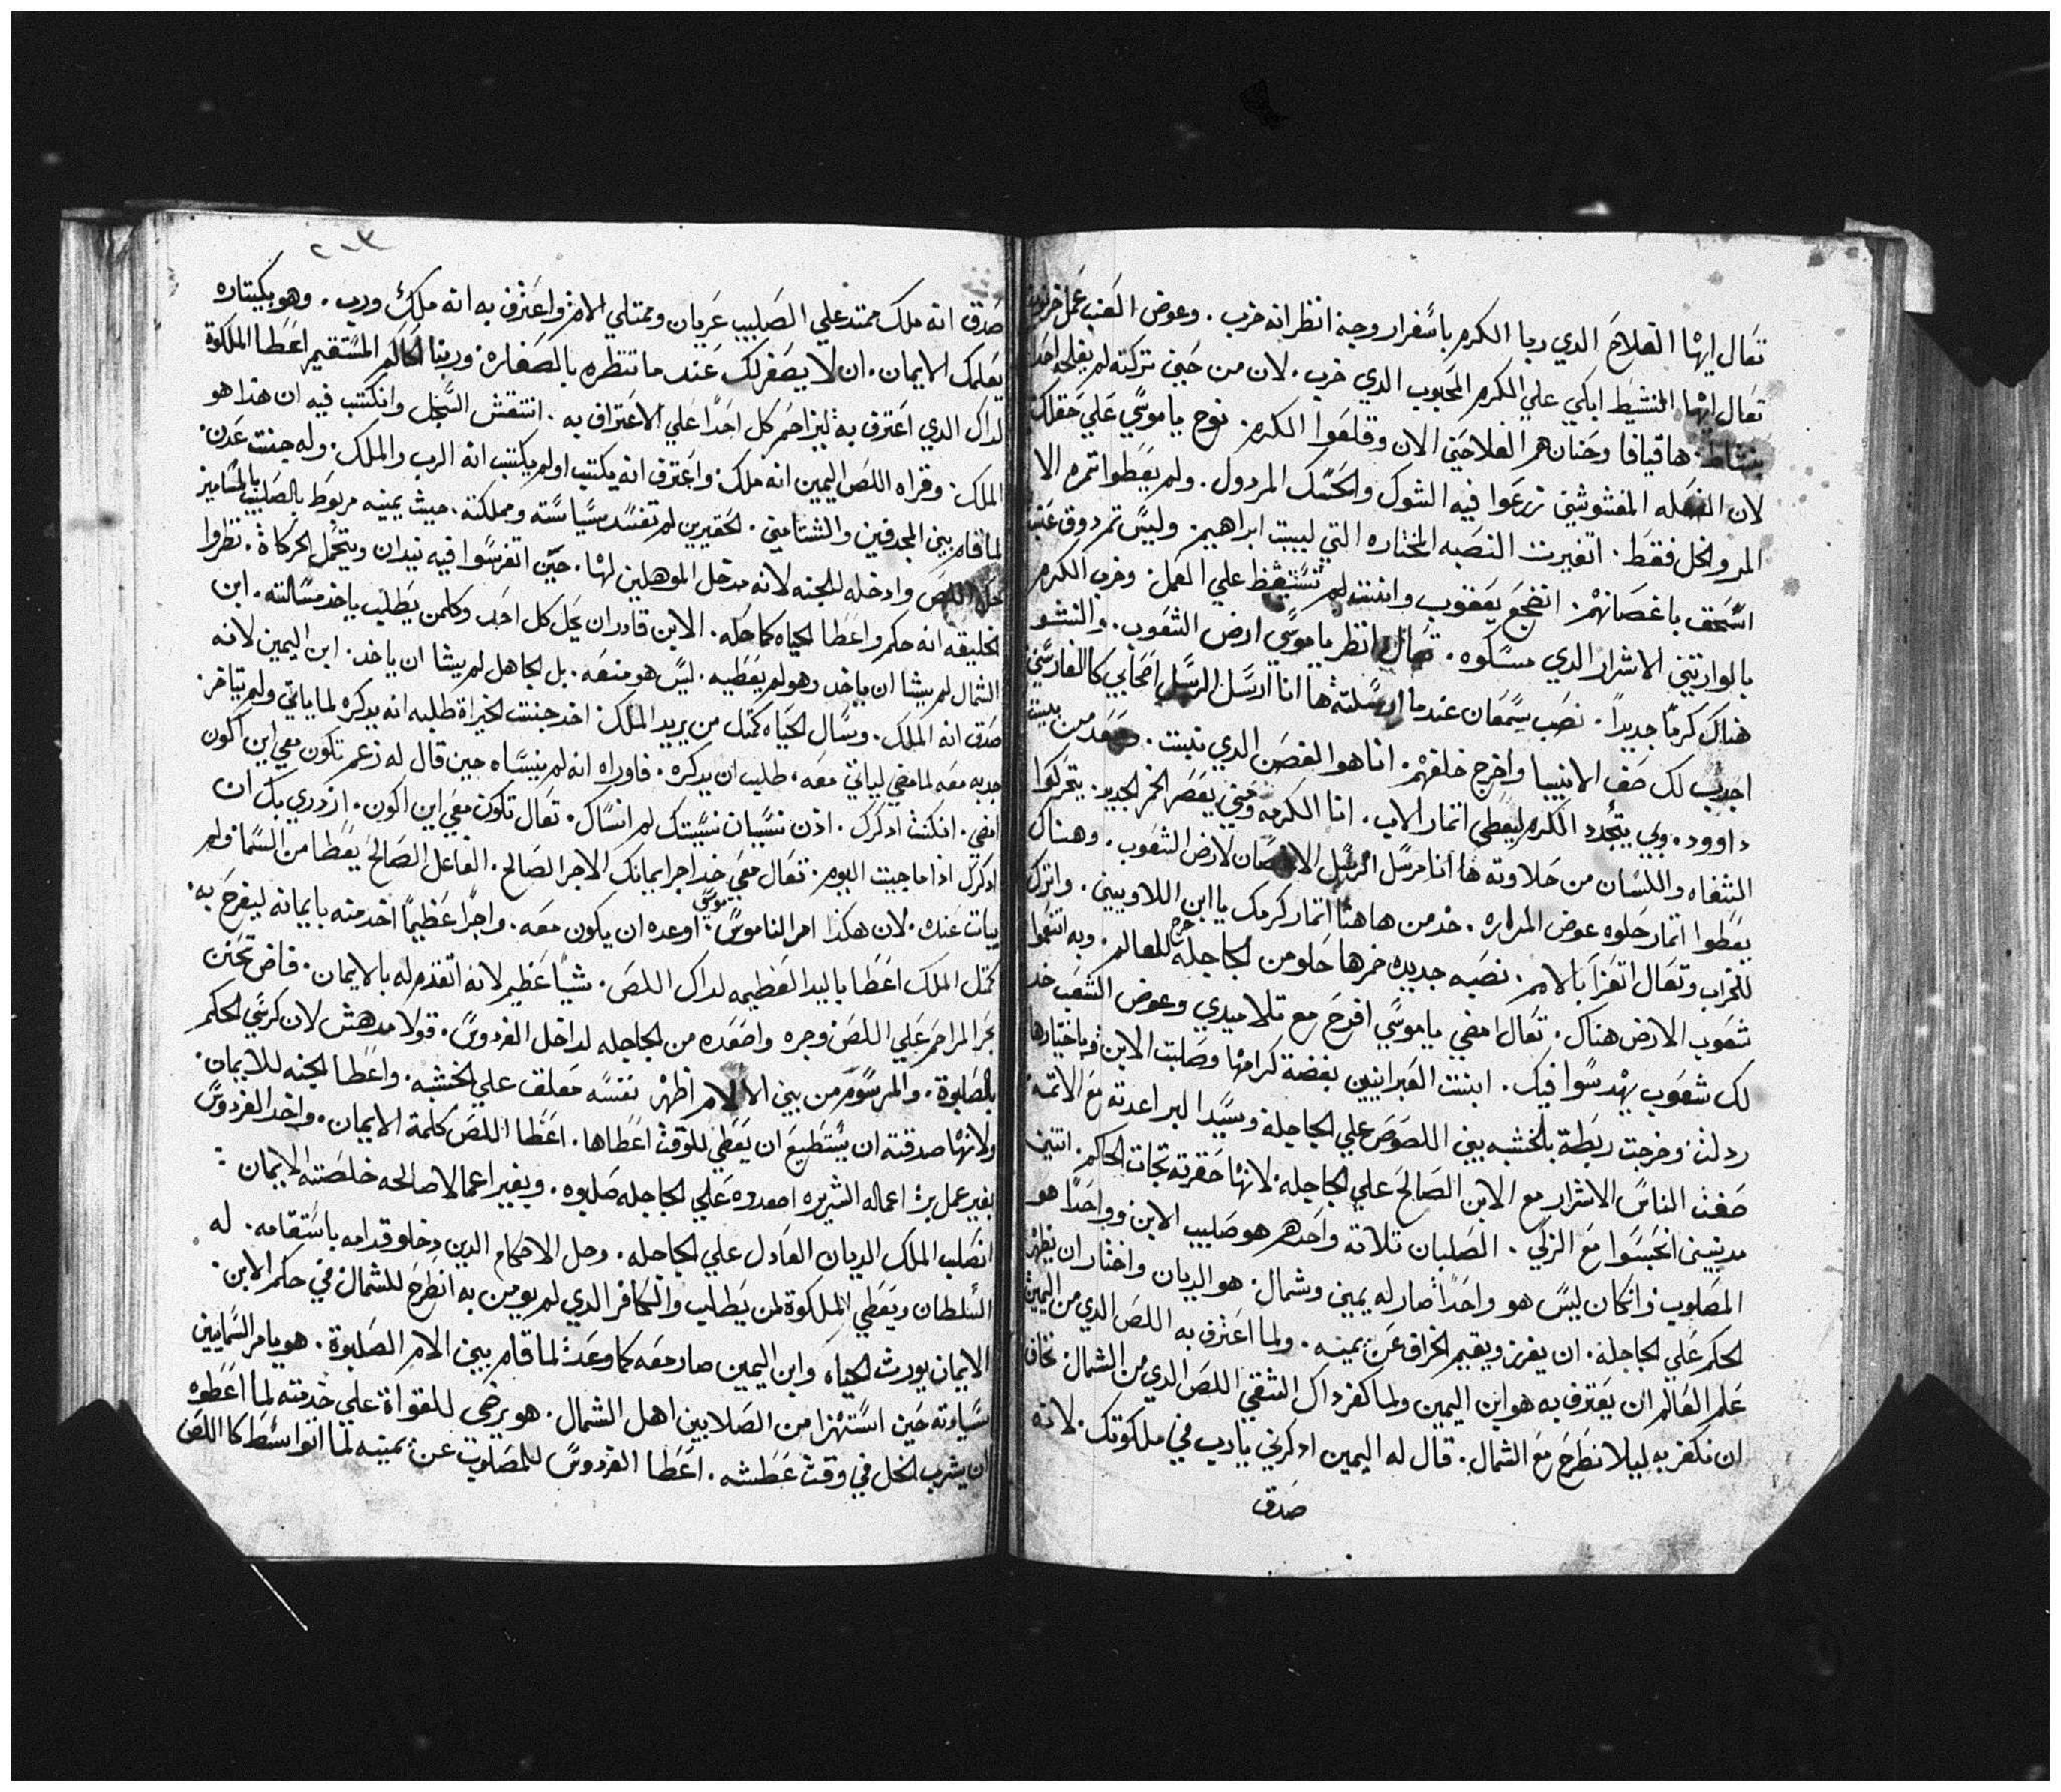 تعال ايها الفلاح الدي ربا الكرم باسفرار وجنة انظر انه خرب . وعوض العنب عمل خرنوب
تعال ايها النشيط ابكي علي الكرم المحبوب الدي خرب . لان من حين تركته لم يفلحه احد
بنشاط . ها قيافا وحنان هم الفلاحين الان وقلعوا الكرم . نوح يا موسي علي حقلك
لان الفعله المغشوشين زرعوا فيه الشوك والحسك المردول . ولم يعطوا تمره الا
المر والخل فقط . اتغيرت النصبه المختاره التي لبيت ابراهيم . وليس تم دوق عنب
اسحق باغصانهم . اتضجع يعقوب وانتت لم تستيقظ علي العمل . وخرب الكرم
بالوارتين الاشرار الدي مسكوه . تعال انظر يا موسي ارض الشعوب . والنشو
هناك كرما جديدا . نصب سمعان عندما ارسلته ها انا ارسل الرسل اصحابي كالفارسين
اجدب لك صف الانبيا واخرج خلفهم . انا هو الغصن الدي نبت . صعد من بيت
داوود . وبي يتجدد الكرم ليعطي اتمار الاب . انا الكرمه ومني يعصر الخمر الجديد . يتحركوا
الشفاه واللسان من حلاوته ها انا مرسل الرسل الاغصان لارض الشعوب . وهناك
يعطوا اتمار حلوه عوض المراره . خد من هاهنا اتمار كرمك يا ابن اللاويين . واترك
للخراب وتعال اتعزا بالامم . نصبه جديده خمرها حلو من الجاجله خرج للعالم . وبه اتنعموا
شعوب الارض هناك . تعال امضي يا موسي افرح مع تلاميدي وعوض الشعب خد
لك شعوب يهدسوا فيك . ابنت العبرانيين بغضة كرامها وصلبت الابن وباختيارها
ردلت وخرجت ربطة بالخشبه بين اللصوص علي الجاجله وسيدا البر اعدته مع الاتمه
صفت الناس الاشرار مع الابن الصالح علي الجاجله لانها حقرته تجات الحاكم . اتنين
مدنيين اتحبسوا مع الزكي . الصلبان تلاته واحدهم هو صليب الابن وواحدا هو
المصلوب وانكان ليس هو واحدا صار له يمين وشمال . هو الديان واختار ان يظهر
الحكم علي الجاجله . ان يفرز ويقيم الخراف عن يمينه . ولما اعترف به اللص الدي من اليمين
علم العالم ان يعترف به هو ابن اليمين ولما كفر داك الشقي اللص الدي من الشمال نخاف
ان نكفر به ليلا نطرح مع الشمال . قال له اليمين ادكرني يارب في ملكوتك . لانه
صدق
٢٠٣
صدق انه ملك ممتد علي الصليب عريان وممتلي الام واعترف به انه ملك ورب . وهو بكيتاره
يعلمك الايمان . ان لا يصغر لك عند ما تنظره بالصغاره . وربنا الحاكم المستقيم اعطا الملكوة
لداك الدي اعترف به ليزاحم كل احدا علي الاعتراف به . انتقش السجل وانكتب فيه ان هدا هو
الملك . وقراه اللص اليمين انه ملك . واعترف انه يكتب اولم يكتب انه الرب والملك . وله جنت عدن .
لما قام بين المجدفين والشتامين . الحقيرين لم تفسد سياسته ومملكته . حيث يمينه مربوط بالصليب بالمسامير
حل اللص وادخله للجنه لانه مدخل الموهلين لها . حين اتفرسوا فيه نيدان ويتحمل الحركاة . نظروا
الخليقه انه حكم واعطا الحياه كما حله . الابن قادر ان يحل كل احد وكلمن يطلب ياخد مسالته . ابن
الشمال لم يشا ان ياخد وهو لم يعطيه . ليس هو منعه . بل الجاهل لم يشا ان ياخد . ابن اليمين لانه
صدق انه الملك . وسال الحياه كمتل من يريد الملك . اخد جنت الخيراة طلبه انه يدكره لما ياتي ولم يتاخر .
جدبه معه لما مضي لياتي معه . طلب ان يدكره . فاوراه انه لم ينساه حين قال له زعم تكون معي اين اكون
امضي . انكنت ادكرك . ادن نسيان نسيتك لم انساك . تعال تكون معي اين اكون . ازدري بك ان
ادكرك ادا ما جيت اليوم . تعال معي خد اجر ايمانك الاجر الصالح . الفاعل الصالح يعطا من السما ولم
يبات عنده . لان هكدا امر الناموس موسي . اوعده ان يكون معه . واجرا عظيما اخد منه بايمانه ليفرح به .
كمتل الملك اعطا باليد العظيمه لداك اللص . شيا عظيم لانه اتقدم له بالايمان . فاض تحنن
بحر المراحم علي اللص وجره واصعده من الجاجله لداخل الفردوس . قولا مدهش لان كرسي الحكم
بالصلبوة . والمرسوم من بين الالام اظهر نفسه معلق علي الخشبه . واعطا الجنه للايمان .
ولانها صدقته ان يستطيع ان يعطي للوقت اعطاها . اعطا اللص كلمة الايمان . واخد الفردوس
بغير عمل بر اعماله الشريره اصعدوه علي الجاجله صلبوه . وبغير اعمالا صالحه خلصته الايمان :
انصلب الملك الديان العادل علي الجاجله . وحل الاحكام الدين دخلو قدامه باستقامه . له
السلطان ويعطي الملكوة لمن يطلب والكافر الدي لم يومن به انطرح للشمال في حكم الابن .
الايمان يورث الحياه وابن اليمين صار معه كما وعده لما قام بين الام الصلبوة . هو يامر السمايين
بسيادته حين استهزا من الصلابين اهل الشمال . هو يرضي للقواة علي خدمته لما اعطوه
ان يشرب الخل في وقت عطشه . اعطا الفردوس للمصلوب عن يمينه لما اتواسط كا اللص